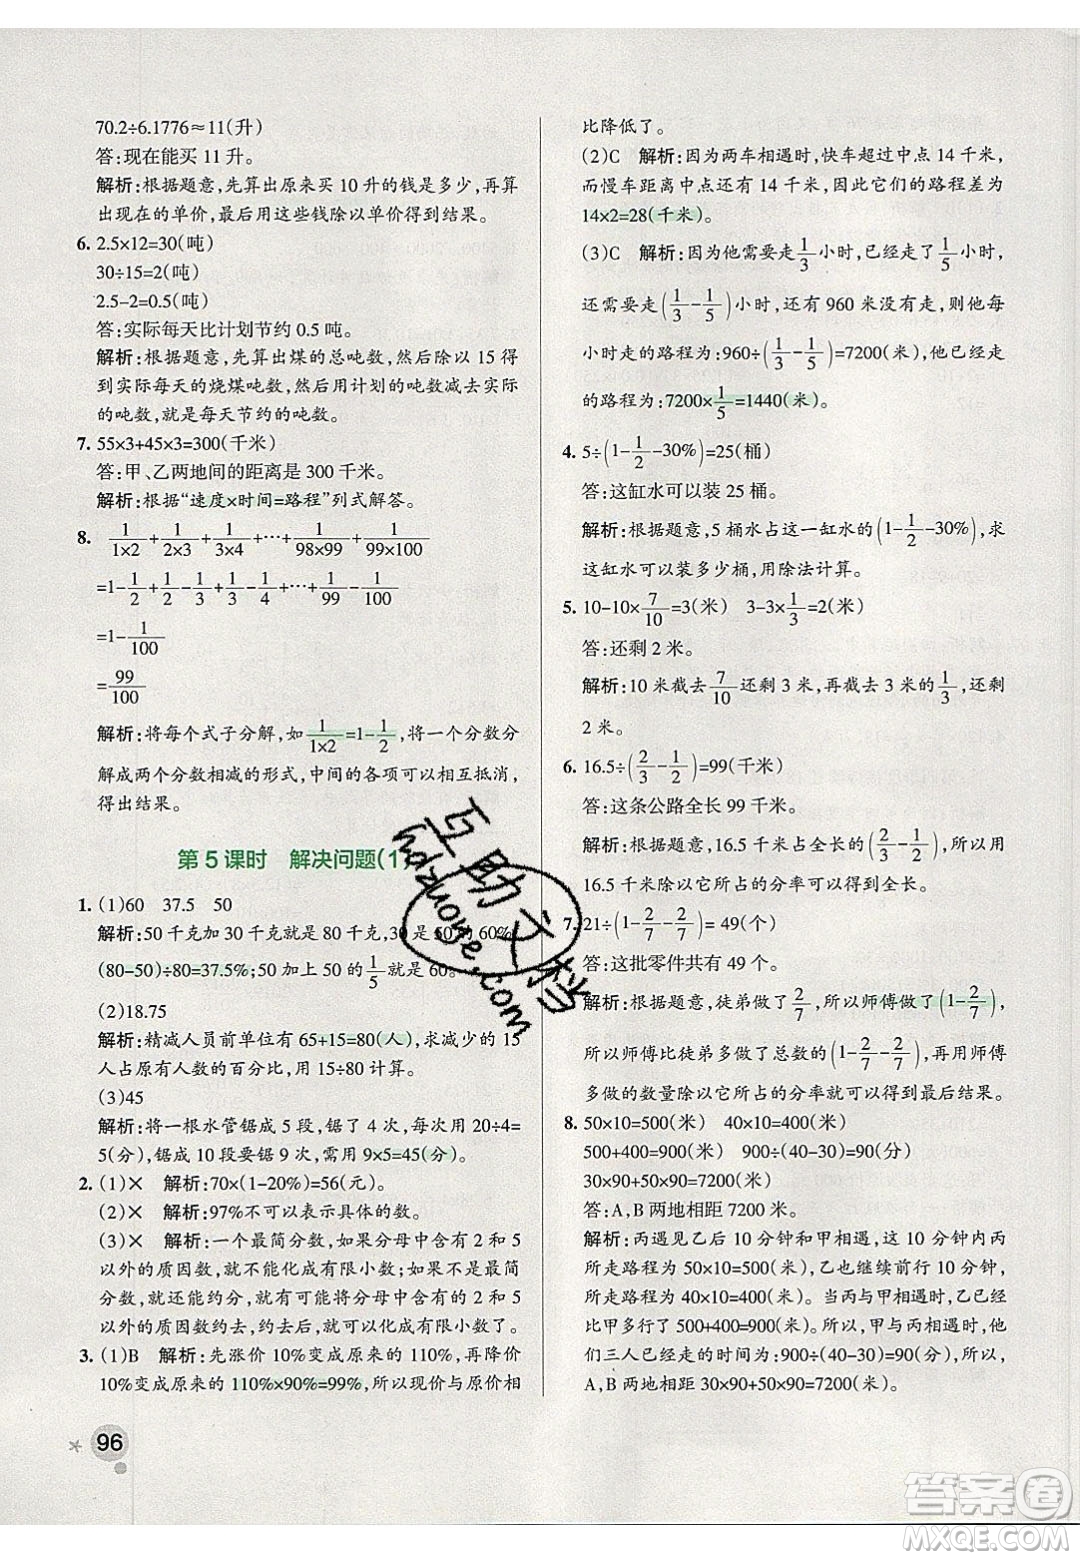 70.2÷6.1776≈11(升)
答:现在能买 11 升。
解析:根据题意,先算出原来买 10 升的钱是多少,再算
出现在的单价,最后用这些钱除以单价得到结果。
6. 2.5×12=30(吨)
30÷15=2(吨)
2.5-2=0.5(吨)
答:实际每天比计划节约 0.5 吨。
解析:根据题意,先算出煤的总吨数,然后除以 15 得
到实际每天的烧煤吨数,然后用计划的吨数减去实际
的吨数,就是每天节约的吨数。
7. 55×3+45×3=300(千米)
答:甲、乙两地间的距离是 300 千米。
解析:根据“速度×时间=路程”列式解答。
8. 1/(1×2)+1/(2×3)+1/(3×4)+…+1/(98×99)+1/(99×100)
=1-1/2+1/2-1/3+1/3-1/4+…+1/99-1/100
=1-1/100
=99/100
解析:将每个式子分解,如1/(1×2)=1-1/2,将一个分数分
解成两个分数相减的形式,中间的可以相互抵消,
得出结果。
第 5 课时 解决问题(1)
1. (1)60 37.5 50
解析:50 千克加 30 千克就是 80 千克,30 是 50 的 60%,
(80-50)÷80=37.5%;50 加上 50 的1/5就是 60。
(2)18.75
解析:精减人员前单位有 65+15=80(人),求减少的 15
人占原有人数的百分比,用 15÷80 计算。
(3)45
解析:将一根水管锯成 5 段,锯了 4 次,每次用 20÷4=
5(分),锯成 10 段要锯 9 次,需 9×5=45(分)。
2. (1)× 解析:70×(1-20%)=56(元)。
(2)× 解析:97%不可以表示具体的数。
(3)× 解析:一个最简分数,如果分母中含有 2 和 5
以外的质因数,就不能化成有限小数;如果不是最简
分数,就还能约分,就有可能将分母中含有的 2 和 5
以外的质因数约去,约去后,就可以化成有限小数。
3. (1)B 解析:先涨价 10%变成原来的 110%,再降价
10%变成原来的 110%×90%=99%,所以现价与原价相
96
比降低了。
(2)C 解析:因为两车相遇时,快车超过中点 14 千米,
而慢车距离中点还有 14 千米,所以它们的路程差为
14×2=28(千米)。
(3)C 解析:因为他需要走1/3小时,已经走了1/5小时,
还需要走(1/3-1/5)小时,还有 960 米没有走,则他每
小时走的路程为:960÷(1/3-1/5)=7200(米),已经走
的路程为:7200×1/5=1440(米)。
4. 5÷(1-1/2-30%)=25(桶)
答:这缸水可以装 25 桶。
解析:根据题意,5 桶水占这一缸水的(1-1/2-30%),求
这缸水可以装多少桶,用除法计算。
5. 10-10×7/10=3(米) 3-3×1/3=2(米)
答:还剩 2 米。
解析:10 米截去7/10还剩 3 米,再截去 3 米的1/3,还剩
2 米。
6. 16.5÷(2/3-1/2)=99(千米)
答:这条公路全长 99 千米。
解析:根据题意,16.5 千米占全长的(2/3-1/2),所以用
16.5 千米除以它所占的分率可以得到全长。
7. 21÷(1-2/7-2/7)= 49(个)
答:这批零件共有 49 个。
解析:根据题意,徒弟做了2/7,所以师傅做了(1-2/7),
所以师傅比徒弟多做了总数的(1-2/7-2/7),再用师傅
多做的数量除以它所占的分率就可以得到结果。
8. 50×10=500(米) 40×10=400(米)
500+400=900(米) 900÷(40-30)=90(分)
30×90+50×90=7200(米)
答:A,B 两地相距 7200 米。
解析:丙遇见乙后 10 分钟和甲相遇,这 10 分钟内丙
所走路程为 50×10=500(米),乙也继续前行 10 分钟,
所走路程为 40×10=400(米)。当丙与甲相遇时,乙已经
超过甲的路程为 500+400=900(米)。所以,甲与丙(也是
他们三人已经走的时间为:900÷(40-30)=90(分),所以,
A,B 两地相距 30×90+50×90=7200(米)。
互助文档
hdzuoye.com
答案圈
MXQE.COM